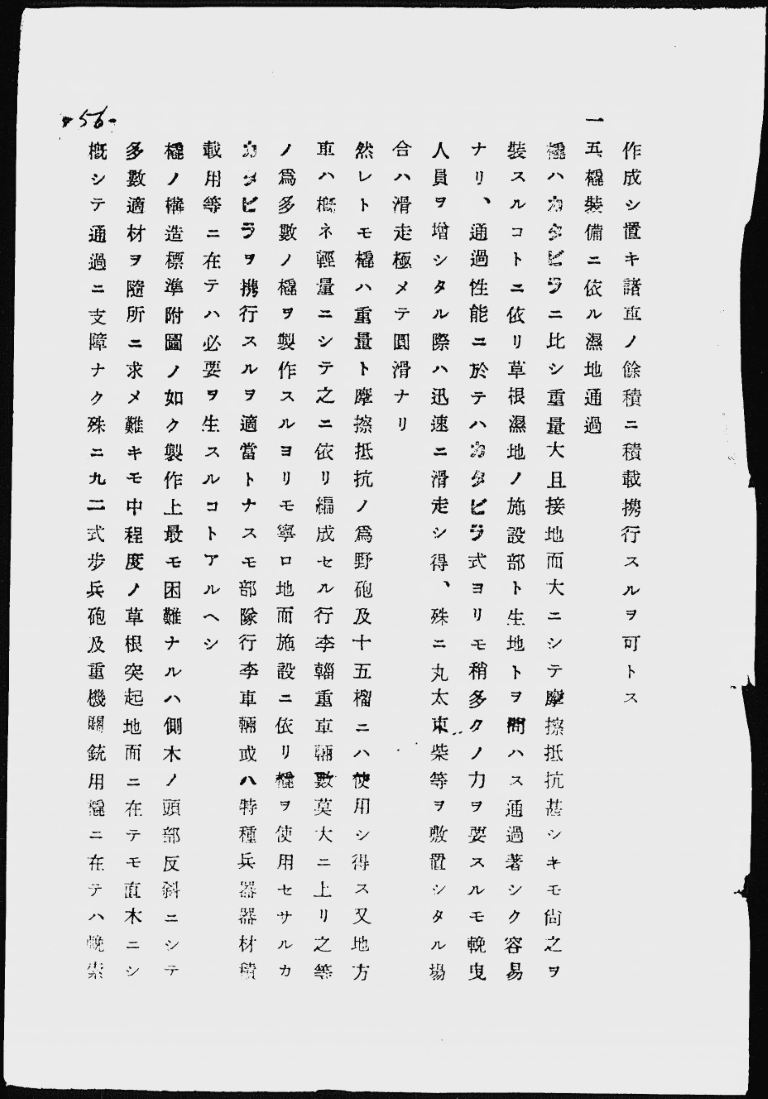 作成シ置キ諸車ノ餘積ニ積載携行スルヲ可トス
一五橇裝備ニ依ル濕地通過
橇ハカタビラニ比シ重量大且接地面大ニシテ摩擦抵抗甚シキモ尙之ヲ
裝スルコトニ依リ草根濕地ノ施設部ト生地トヲ問ハス通過著シク容易
ナリ、通過性能ニ於テハカタビラ式ヨリモ稍多クノ力ヲ要スルモ輓曳
人員ヲ增シタル際ハ迅速ニ滑走シ得、殊ニ丸太束柴等ヲ敷置シタル場
合ハ滑走極メテ圓滑ナリ
然レトモ橇ハ重量ト摩擦抵抗ノ爲野砲及十五榴ニハ使用シ得ス又地方
車ハ槪ネ輕量ニシテ之ニ依リ編成セル行李輜重車輛數莫大ニ上リ之等
ノ爲多數ノ橇ヲ製作スルヨリモ寧ロ地面施設ニ依リ橇ヲ使用セサルカ
カタビラヲ携行スルヲ適當トナスモ部隊行李車輛或ハ特種兵器器材積
載用等ニ在テハ必要ヲ生スルコトアルヘシ
橇ノ構造標準附圖ノ如ク製作上最モ困難ナルハ側木ノ頭部反斜ニシテ
多數適材ヲ隨所ニ求メ難キモ中程度ノ草根突起地面ニ在テモ直木ニシ
槪シテ通過ニ支障ナク殊ニ九二式步兵砲及重機關銃用橇ニ在テハ輓索
56